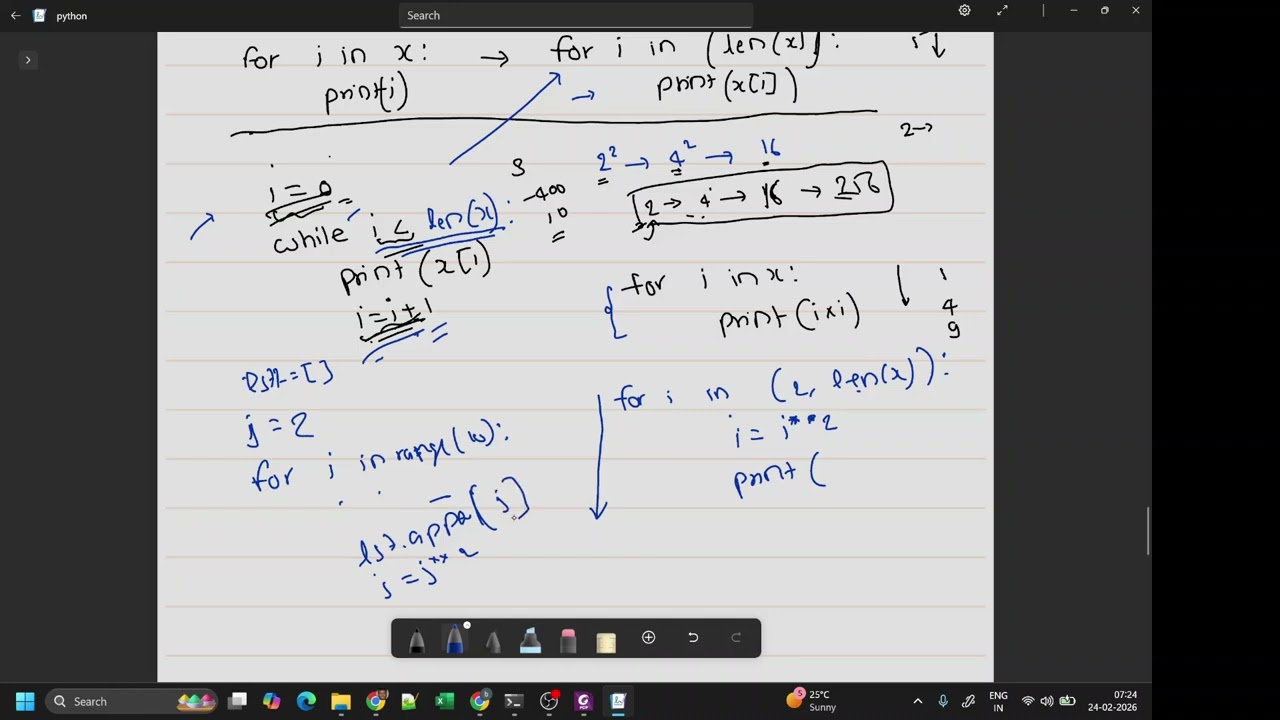 python
Search
for i in x: → for i in (len(x)):
print(i) → print(x[i])
2→
i = 0
while i < len(x):
print(x[i])
i = i + 1
-400
10
2² → 4² → 16
2 → 4 → 16 → 256
for i in x:
print(i×i)
1
4
9
lst=[]
j = 2
for i in range(10):
lst.appe(j)
j = j**2
for i in (2, len(x)):
i = i**2
print(
Search
5
25°C
Sunny
ENG
IN
07:24
24-02-2026